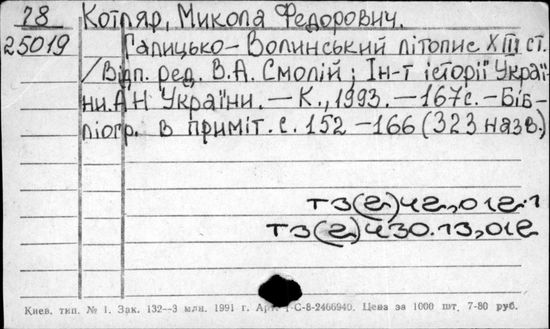 78 Котляр, Микола Федорович.
25019 Галицько-Волинський літопис XIII ст.
/Відп. ред. В.А. Смолій; Ін-т історії Украї-
ни АН України. — К., 1993. — 167с. — Біб-
ліогр. в приміт. с. 152-166 (323 назв.)
Т3(2)42,012.1
Т3(2)430.13,012
Киев. тип. № 1. Зак. 132—3 млн. 1991 г. С-8-2466940. Цена за 1000 шт. 7-80 руб.